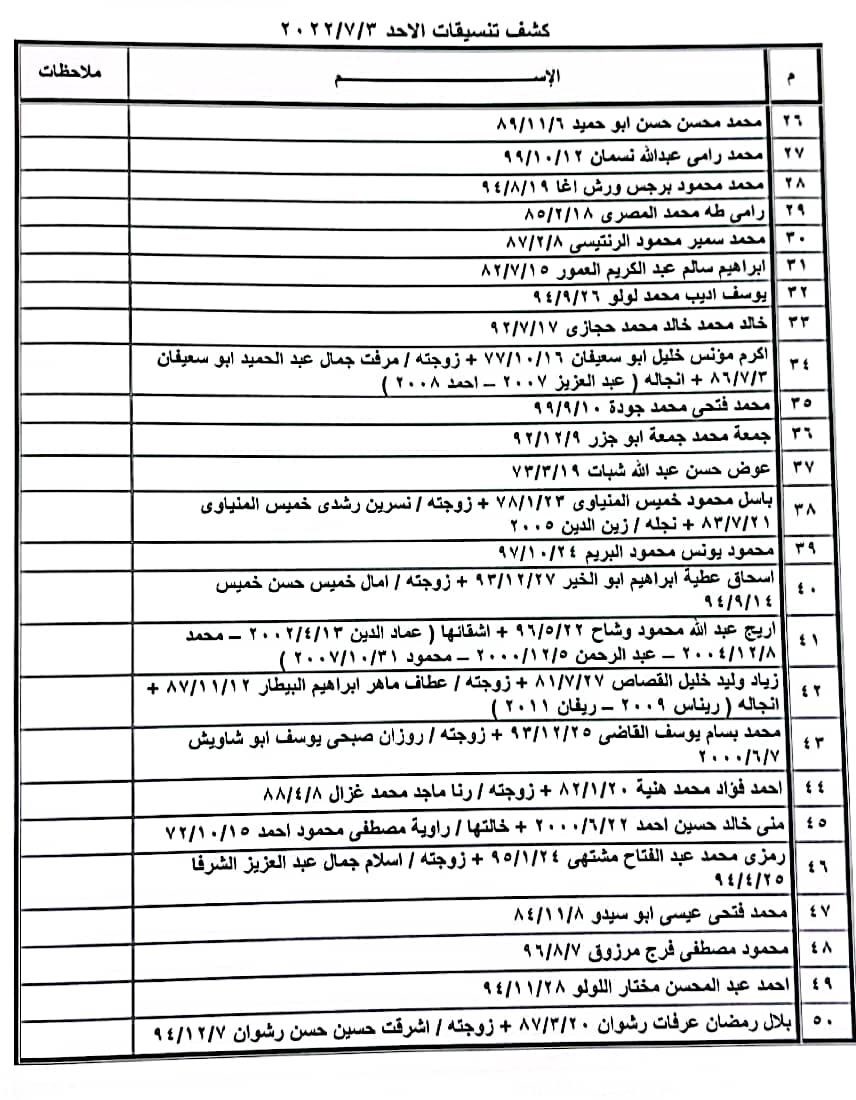 كشف تنسيقات الاحد ٢٠٢٢/٧/٣
م الإســـــــــم ملاحظات
٢٦ محمد محسن حسن ابو حميد ٨٩/١١/٦
٢٧ محمد رامى عبدالله نسمان ٩٩/١٠/١٢
٢٨ محمد محمود برجس ورش اغا ٩٤/٨/١٩
٢٩ رامى طه محمد المصرى ٨٥/٢/١٨
٣٠ محمد سمير محمود الرنتيسى ٨٧/٢/٨
٣١ ابراهيم سالم عبد الكريم العمور ٨٢/٧/١٥
٣٢ يوسف اديب محمد لولو ٩٤/٩/٢٦
٣٣ خالد محمد خالد محمد حجازى ٩٢/٧/١٧
٣٤ اكرم مؤنس خليل ابو سعيفان ٧٧/١٠/١٦ + زوجته / مرفت جمال عبد الحميد ابو سعيفان
٨٦/٧/٣ + انجاله ( عبد العزيز ٢٠٠٧ – احمد ٢٠٠٨ )
٣٥ محمد فتحى محمد جودة ٩٩/٩/١٠
٣٦ جمعة محمد جمعة ابو جزر ٩٢/١٢/٩
٣٧ عوض حسن عبد الله شبات ٧٣/٣/١٩
٣٨ باسل محمود خميس المنياوى ٧٨/١/٢٣ + زوجته / نسرين رشدى خميس المنياوى
٨٣/٧/٢١ + نجله / زين الدين ٢٠٠٥
٣٩ محمود يونس محمود البريم ٩٧/١٠/٢٤
٤٠ اسحاق عطية ابراهيم ابو الخير ٩٣/١٢/٢٧ + زوجته / امال خميس حسن خميس
٩٤/٩/١٤
٤١ اريج عبد الله محمود وشاح ٩٦/٥/٢٢ + اشقائها ( عماد الدين ٢٠٠٢/٤/١٣ – محمد
٢٠٠٤/١٢/٨ – عبد الرحمن ٢٠٠٠/١٢/٥ – محمود ٢٠٠٧/١٠/٣١ )
٤٢ زياد وليد خليل القصاص ٨١/٧/٢٧ + زوجته / عطاف ماهر ابراهيم البيطار ٨٧/١١/١٢ +
انجاله ( ريناس ٢٠٠٩ – ريفان ٢٠١١ )
٤٣ محمد بسام يوسف القاضى ٩٣/١٢/٢٥ + زوجته / روزان صبحى يوسف ابو شاويش
٢٠٠٠/٦/٧
٤٤ احمد فؤاد محمد هنية ٨٢/١/٢٠ + زوجته / رنا ماجد محمد غزال ٨٨/٤/٨
٤٥ منى خالد حسين احمد ٢٠٠٠/٦/٢٢ + خالتها / راوية مصطفى محمود احمد ٧٢/١٠/١٥
٤٦ رمزى محمد عبد الفتاح مشتهى ٩٥/١/٢٤ + زوجته / اسلام جمال عبد العزيز الشرفا
٩٤/٤/٢٥
٤٧ محمد فتحى عيسى ابو سيدو ٨٤/١١/٨
٤٨ محمود مصطفى فرج مرزوق ٩٦/٨/٧
٤٩ احمد عبد المحسن مختار اللولو ٩٤/١١/٢٨
٥٠ بلال رمضان عرفات رشوان ٨٧/٣/٢٠ + زوجته / اشرقت حسين حسن رشوان ٩٤/١٢/٧